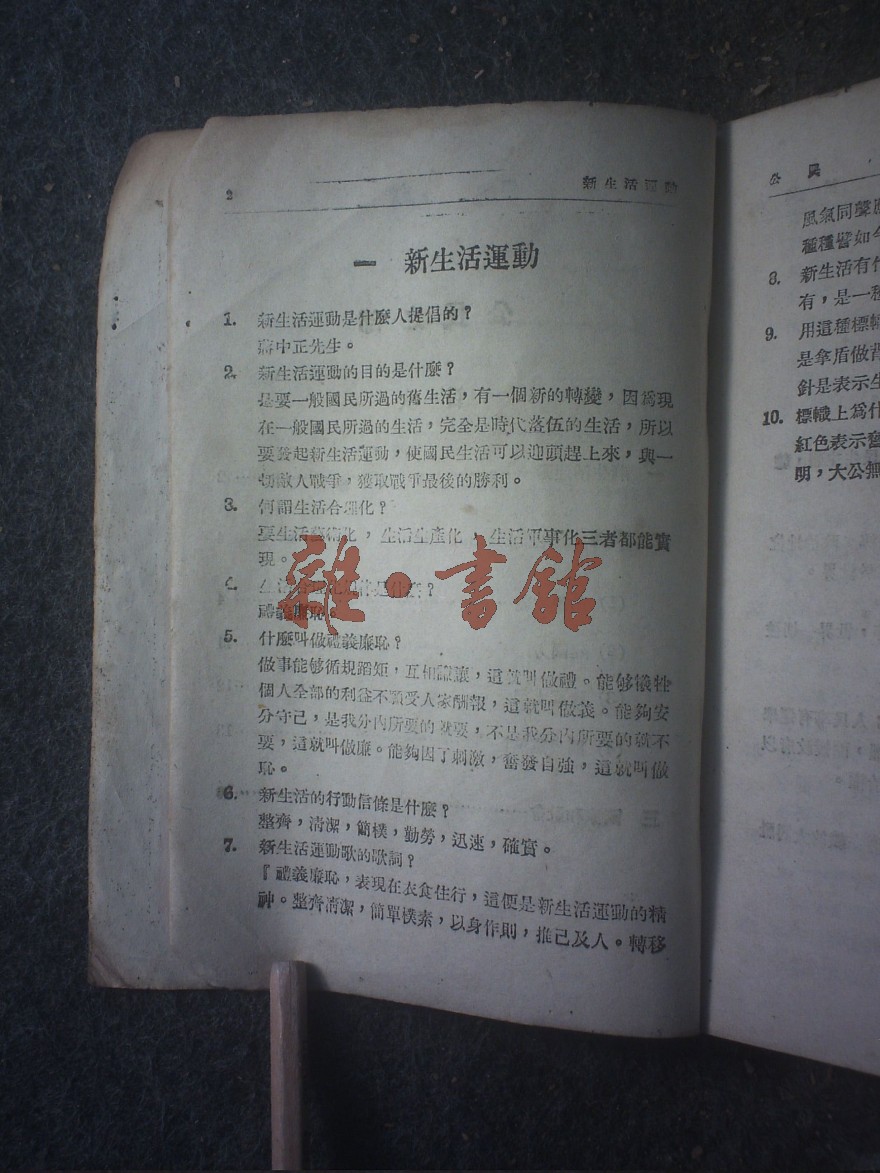 2 新生活運動
一 新生活運動
1. 新生活運動是什麼人提倡的？
蔣中正先生。
2. 新生活運動的目的是什麼？
是要一般國民所過的舊生活，有一個新的轉變，因爲現
在一般國民所過的生活，完全是時代落伍的生活，所以
要發起新生活運動，使國民生活可以迎頭趕上來，與一
切敵人戰爭，獲取戰爭最後的勝利。
3. 何謂生活合理化？
要生活藝術化，生活生產化，生活軍事化三者都能實
現。
4. 生活 是什麼？
禮義廉恥。
5. 什麼叫做禮義廉恥？
做事能够循規蹈矩，互相謙讓，這就叫做禮。能够犧牲
個人全部的利益不願受人家酬報，這就叫做義。能夠安
分守己，是我分內所要的就要，不是我分內所要的就不
要，這就叫做廉。能夠因了刺激，奮發自強，這就叫做
恥。
6. 新生活的行動信條是什麼？
整齊，清潔，簡樸，勤勞，迅速，確實。
7. 新生活運動歌的歌詞？
『禮義廉恥，表現在衣食住行，這便是新生活運動的精
神。整齊清潔，簡單樸素，以身作則，推己及人。轉移
雜·書館
公民
風氣同聲應
種種譬如今
8. 新生活有什
有，是一種
9. 用這種標幟
是拿盾做背
針是表示生
10. 標幟上爲什
紅色表示舊
明，大公無